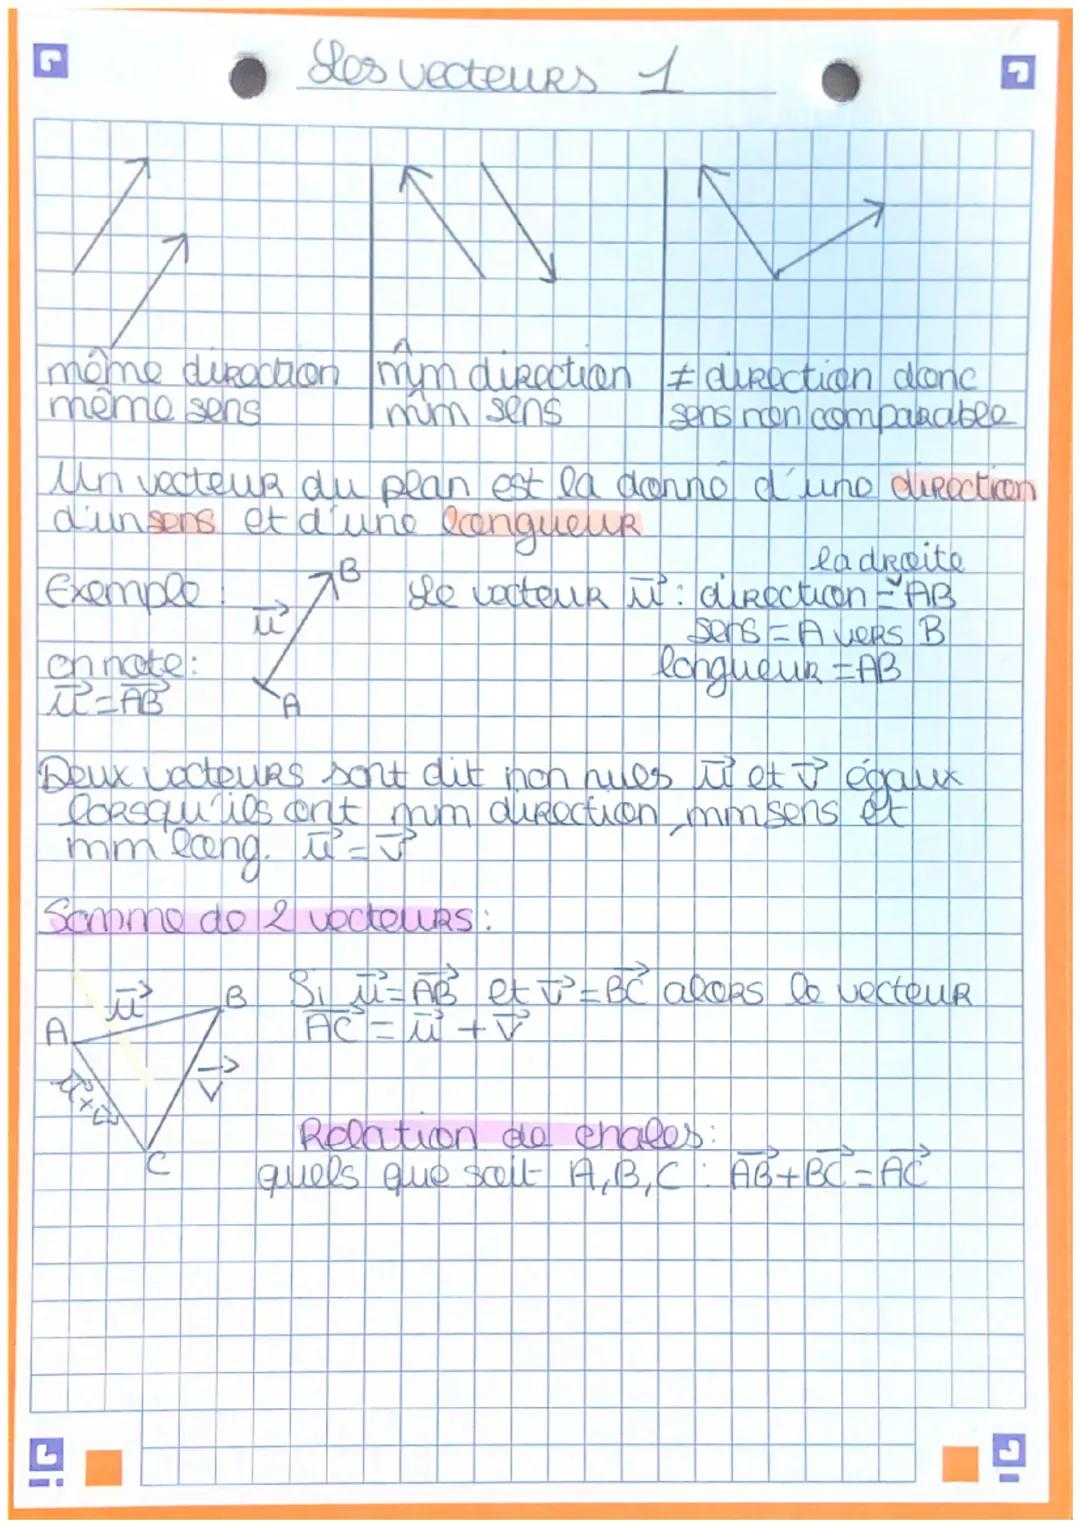 Les vecteurs 1
même direction
même sens
mm direction
mm sens
≠ direction donc
sens non comparable
Un vecteur du plan est la donné d'une direction
d'un sens et d'une longueur
Exemple :
u B
A
on note :
u = AB
la droite
Le vecteur u : direction = AB
sens = A vers B
longueur = AB
Deux vecteurs sont dit non nuls u et v égaux
lorsqu'ils ont mm direction, mm sens et
mm long. u = v
Somme de 2 vecteurs :
A u B
v
C
Si u = AB et v = BC alors le vecteur
AC = u + v
Relation de chales :
quels que soit A, B, C : AB + BC = AC